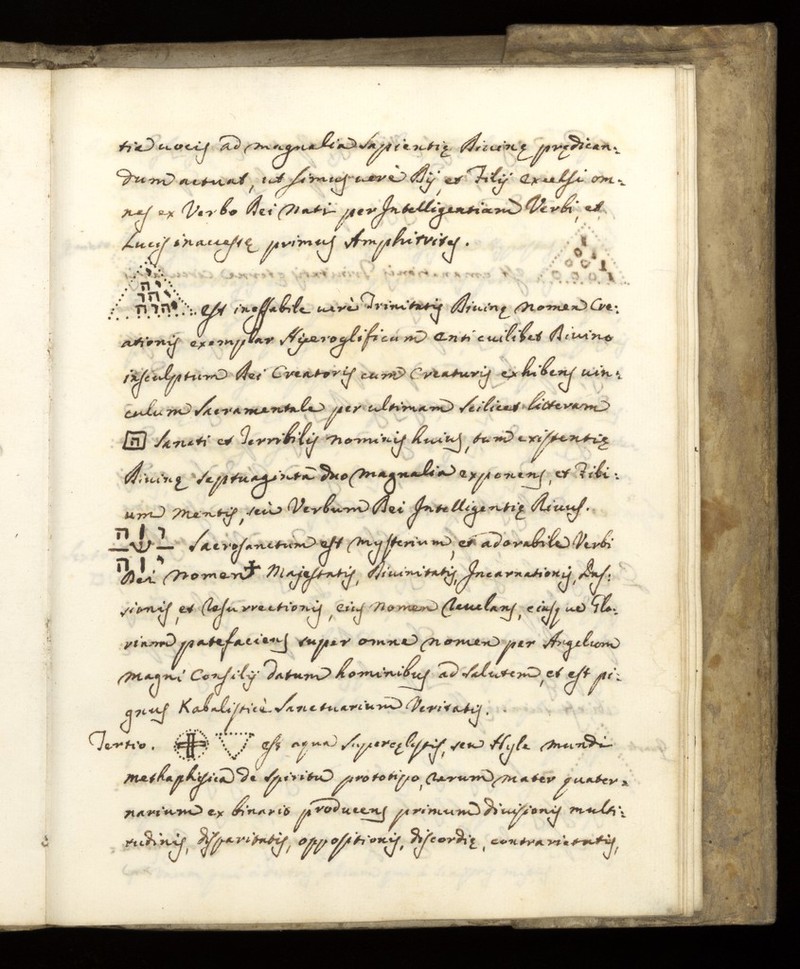 tia vocis ad magnalia Sapientię Divinę prędican:
dum actuat, ut simus verè Dij, et Filij excelsi om:
nes ex Verbo Dei Nati per Intelligentiam Verbi, et
Lucis inaccessę primus Amphitrites.
י
יה
יהו
יהוה
est ineffabile verè Trinitatis Divinę nomen Cre:
ationis exemplar Hieroglificum enti cuilibet Divino
insculptum Dei Creatoris cum Creaturis exhibens vin:
culum Sacramentale per ultimam scilicet litteram
ה Sancti et Terribilis nominis huius, tum existentię
Divinę septuaginta duo magnalia exponens, et Fili:
um Mentis, seù Verbum Dei Intelligentię Rivus.
Sacrosanctum est mysterium, et adorabile Verbi
Dei nomen Majestatis, Divinitatis, Incarnationis, Pas:
sionis, et resurrectionis, eius nomen revelans, eiusque Glo:
riam patefaciens super omne nomen per Angelum
magni Consilij datum hominibus ad salutem, et est pi:
gnus Kabalisticè Sanctuarium Veritatis.
Tertio. est aqua supercęlestis, seu Hyle mundi
methaphisica de spiritu prototipo, rerum mater quater:
narium ex binario producens primum divisionis multi:
tudinis, disparitatis, oppositionis, discordię, contrarietatis,